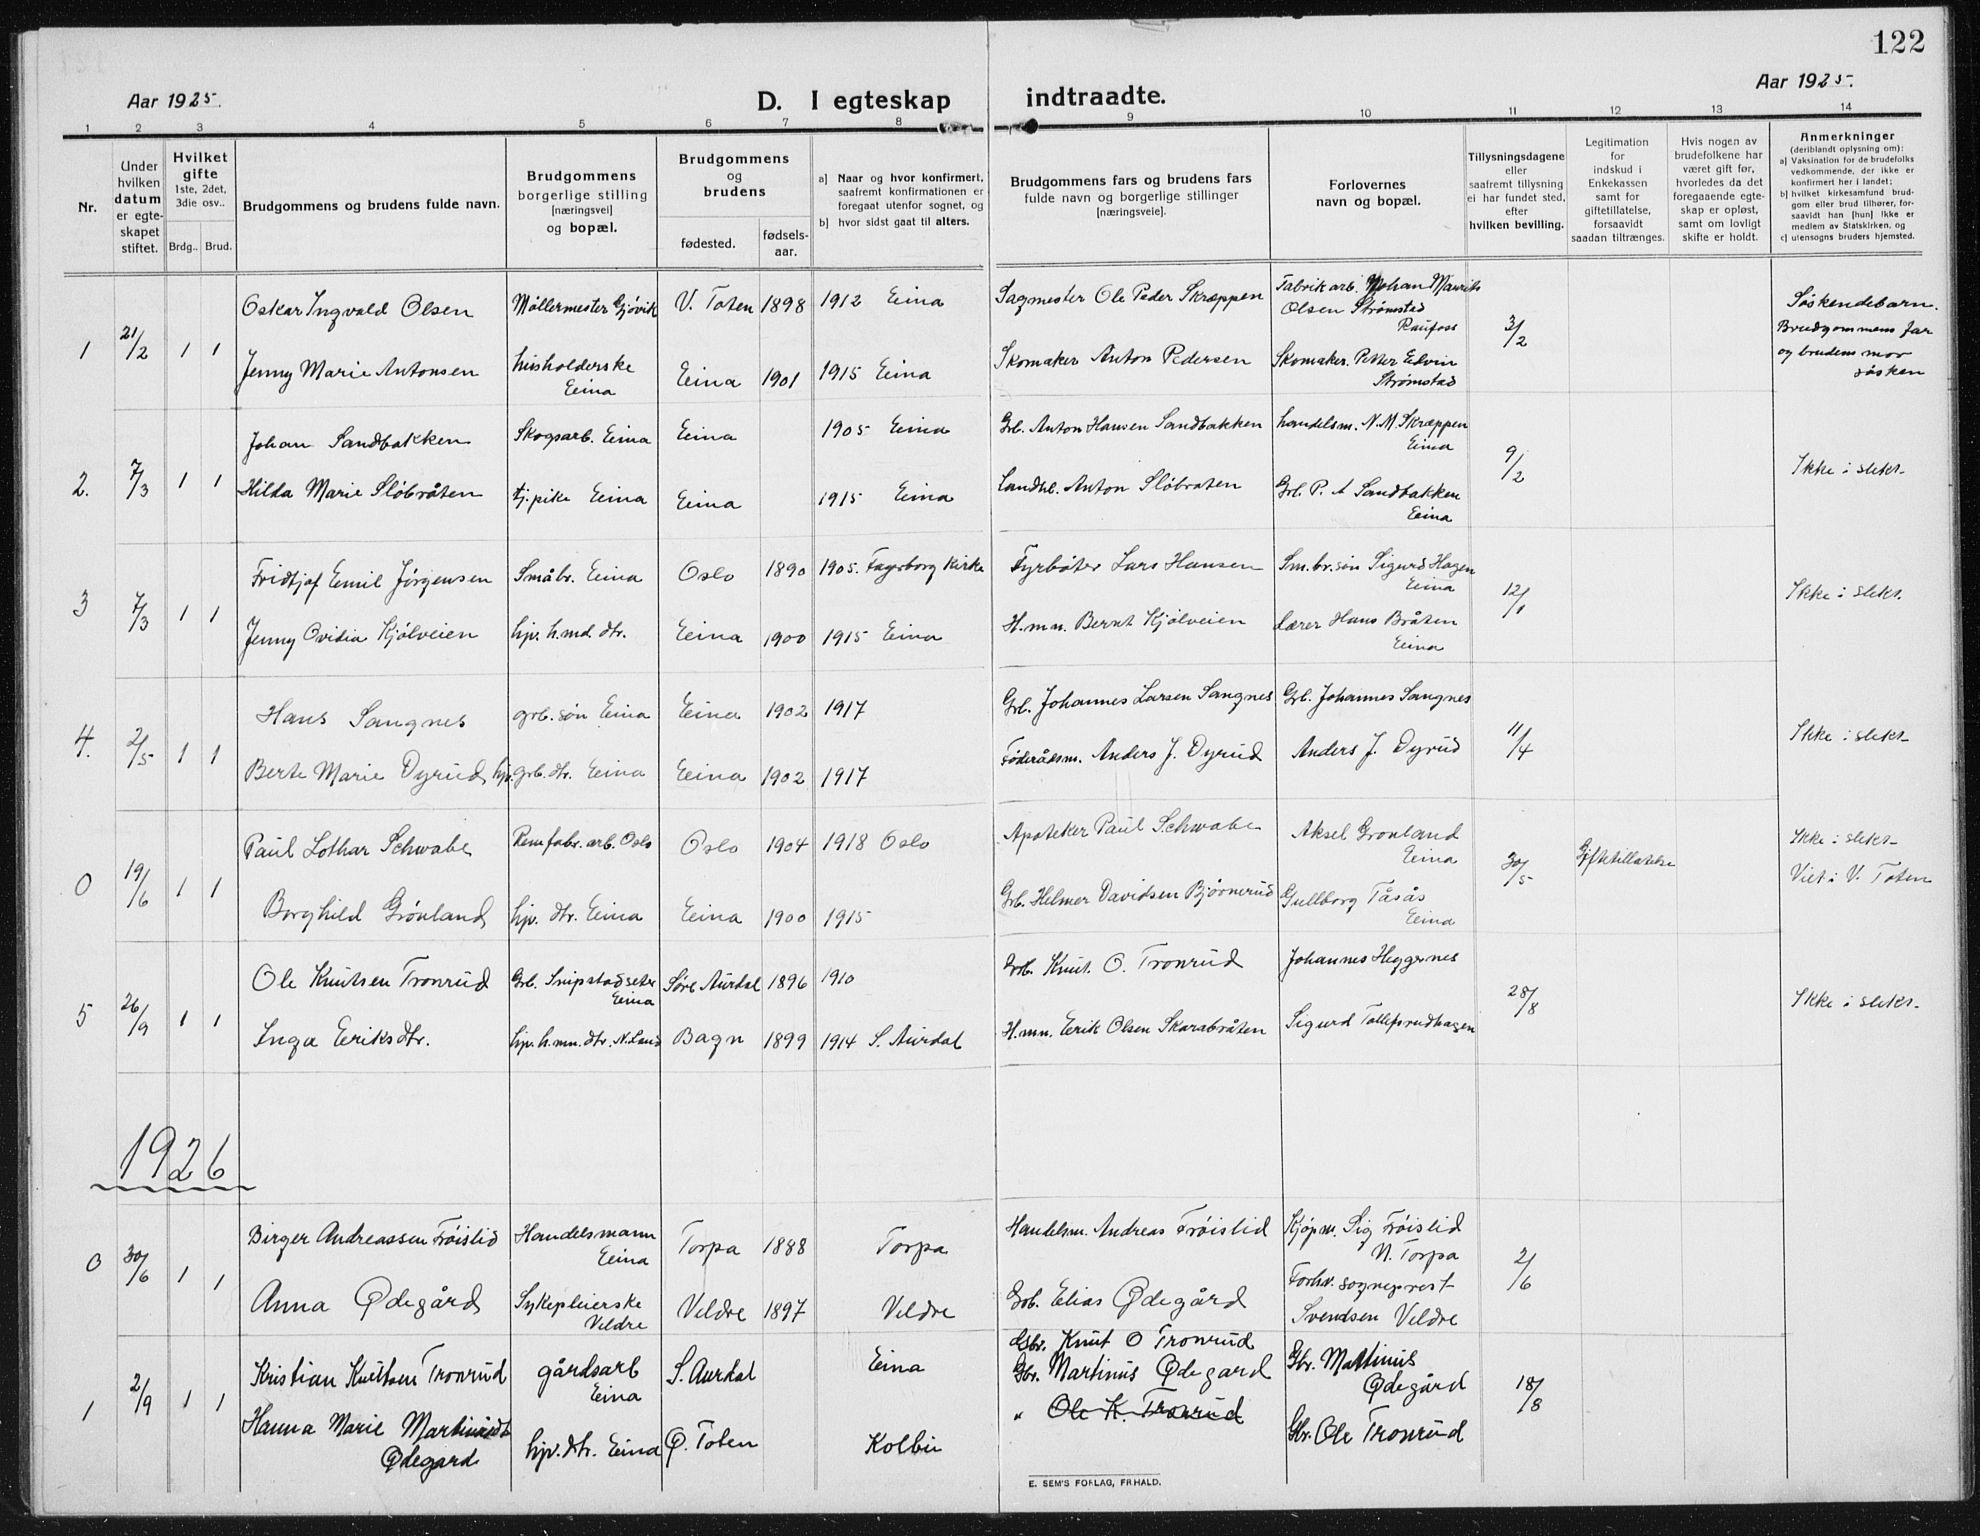 122
Aar 1925.
D. I egteskap indtraadte.
Aar 1925.
1 2 3 4 5 6 7 8 9 10 11 12 13 14
Nr.
Under hvilken datum er egte-skapet stiftet.
Hvilket gifte
1ste, 2det, 3die osv..
Brdg.. Brud.
Brudgommens og brudens fulde navn.
Brudgommens borgerlige stilling [næringsvei] og bopæl.
Brudgommens og brudens
fødested.
fødsels-aar.
a) Naar og hvor konfirmert, saafremt konfirmationen er foregaat utenfor sognet, og
b) hvor sidst gaat til alters.
Brudgommens fars og brudens fars fulde navn og borgerlige stillinger [næringsveie].
Forlovernes navn og bopæl.
Tillysningsdagene eller saafremt tillysning ei har fundet sted, efter hvilken bevilling.
Legitimation for indskud i Enkekassen samt for giftetillatelse, forsaavidt saadan tiltrænges.
Hvis nogen av brudefolkene har været gift før, hvorledes da det foregaaende egte-skap er opløst, samt om lovligt skifte er holdt.
Anmerkninger
(deriblandt oplysning om):
a) Vaksination for de brudefolks vedkommende, der ikke er konfirmert her i landet;
b) hvilket kirkesamfund brud-gom eller brud tilhører, for-saavidt han [hun] ikke er medlem av Statskirken, og
c) utensogns bruders hjemsted.
1 21/2 1 1
Oskar Ingvald Olsen Møllermester Gjøvik V. Toten 1898 1912 Eina Sagmester Ole Peder Skræppen Fabrikarb. Johan Maurits
Olsen Strømstad
Raufoss
3/2
Søskendebarn.
Brudgommens far
og brudens mor
søsken
Jenny Marie Antonsen husholderske
Eina
Eina 1901 1915 Eina Skomaker Anton Pedersen Skomaker. Petter Edvin
Strømstad
2. 7/3 1 1
Johan Sandbakken Skogsarb. Eina Eina 1905 Eina Grb. Anton Hansen Sandbakken handelsm. N. M. Skræppen
Eina
9/2
Ikke i slekt
Hilda Marie Sløbråten tj. pike Eina Eina 1915 Eina Landhl. Anton Sløbraten Grb. P. A Sandbakken
Eina
3 7/3 1 1
Fridtjof Emil Jørgensen Småbr. Eina Oslo 1890 1905. Fagerborg kirke Fyrbøter Lars Hansen Sm.br.søn Sigurd Hagen
Eina
12/1
Ikke i slekt.
Jenny Ovidia Kjølveien hjv. h.md. dtr. Eina 1900 1915 Eina H.mn. Bernt Kjølveien Lærer Hans Bråten
Eina
4. 2/5 1 1
Hans Sangnes grb. søn Eina Eina 1902 1917 Grb. Johannes Larsen Sangnes Grb. Johannes Sangnes
11/4
Ikke i slekt
Berte Marie Dyrud hjv. grb. dtr. Eina Eina 1902 1917 Føderådsm. Anders J. Dyrud Anders J. Dyrud
0 19/6 1 1
Paul Lothar Schwabe Remfabr. arb. Oslo Oslo 1904 1918 Oslo Apoteker Paul Schwabe Aksel Grønland
Eina
30/5 Giftetillatelse
Ikke i slekt
Viet i V. Toten
Borghild Grønland hjv. dtr. Eina Eina 1900 1915 Grb. Helmer Davidsen Bjørnerud Gullborg Tåsås
Eina
5 26/9 1 1
Ole Knutsen Tronrud Grb. Snipstadseter
Eina
Søre Aurdal 1896 1910 Grb. Knut. O. Tronrud Johannes Heggenes
28/8
Ikke i slekt
Inga Eriksdtr. hjv. h.mn. dtr. N. Land Bagn 1899 1914 S. Aurdal H.mn. Erik Olsen Skarabråten Sigurd Tollefsrudhagen
1926
0 30/6 1 1
Birger Andreassen Frøislid Handelsmann
Eina
Torpa 1888 Torpa Handelsm. Andreas Frøislid Kjøpm. Sig Frøislid
N. Torpa
2/6
Anna Ødegård Sykepleierske
Veldre
Veldre 1897 Veldre Grb. Elias Ødegård Forhv. sogneprest
Svendsen Veldre
1 2/9 1 1
Kristian Knutsen Tronrud gårdsarb
Eina
S. Aurdal Eina Gbr. Knut O Tronrud
Gbr. Martinus Ødegard Gbr. Martinus
Ødegård
18/8
Hanna Marie Martinusdt
Ødegard
hjv. dtr. Eina Ø. Toten Kolbu " Ole K. Tronrud Gbr. Ole Tronrud
E. SEM'S FORLAG, FRHALD.